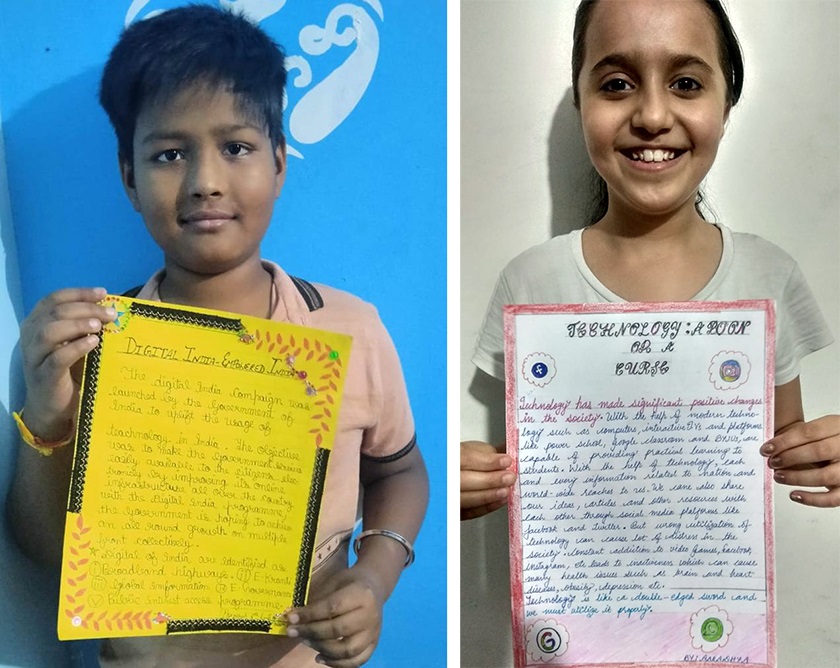 DIGITAL INDIA-EMPOWERED INDIA
The digital India Campaign was
launched by the Government of
India to uplift the usage of
teachnology in India. The objective
was to make the government
easily available to the citizens
by improving its online
infrastructure all over the country
with the digital India programme
the Government is hoping to achieve
an all round growth on multiple
front colectively.
Digital of India are identified as
Broadband highways. E-Kranti
global information E-Governance
Public interest access programme.
TECHNOLOGY: A BOON
OR A
CURSE
Technology has made significant positive changes
in the society. With the help of modern techno-
logy such as computers, interactive TVs and platforms
like power school, Google classroom and BYJU's, are
capable of providing practical learning to
students. With the help of technology, each
and every information related to nation and
world-wide reaches to us. We can also share
our ideas, articles and other resources with
each other through social media platforms like
facebook and twitter. But wrong utilization of
technology can cause lot of distress in the
society. Constant addiction to video games, facebook,
instagram, etc leads to inactiveness which can cause
many health issues such as brain and heart
diseases, obesity, depression etc.
Technology is like a double-edged sword and
we must utilize it properly.
G
BY: AARADHYA